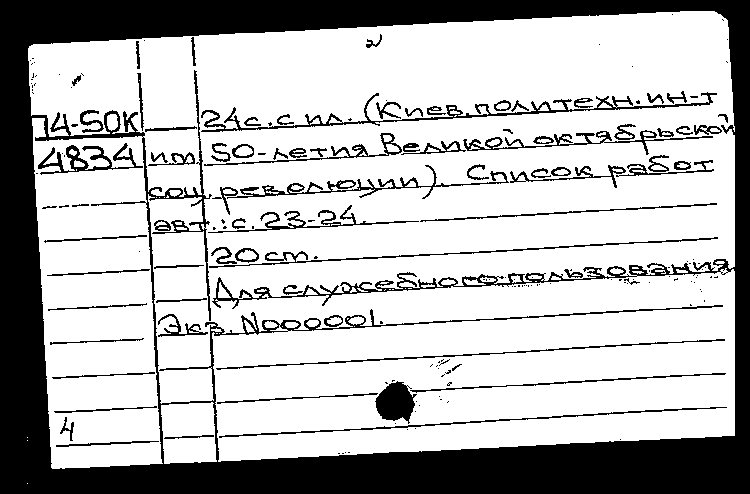 2
74-50К 24с. с ил. (Киев. политехн. ин-т
4834 им. 50-летия Великой октябрьской
соц. революции). Список работ
авт.: с. 23-24.
20 ст.
Для служебного пользования
Экз. N000001.
4